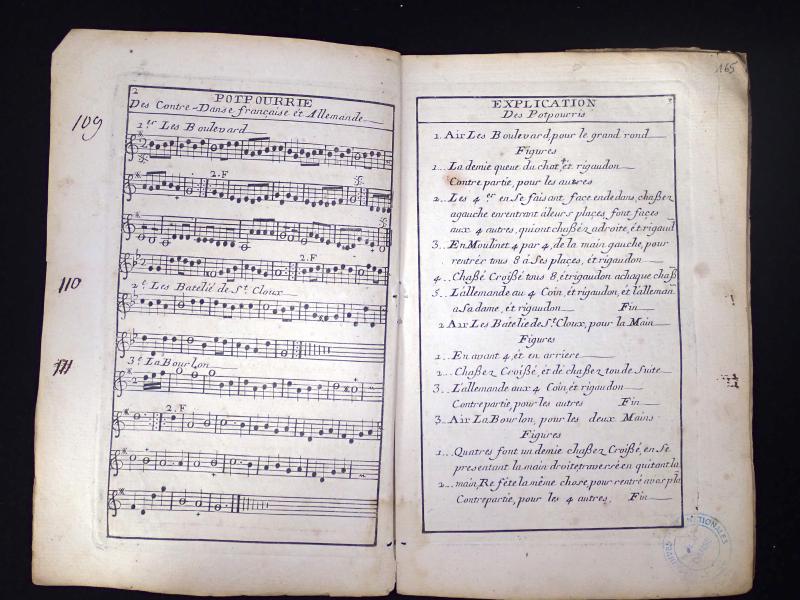 109
110
111
2
POTPOURRIE
Des Contre-Danse française et Allemande
1.er Les Boulevard
2.F
2.F
2.e Les Batelié de S.t Cloux
3.e La Bourlon
2.F
165
3
EXPLICATION
Des Potpourris
1. Air Les Boulevard, pour le grand rond
Figures
1... La demie queue du chat, et rigaudon
Contre partie, pour les autres
2... Les 4 er en Se faisant face en dedans, chaßez
agauche en rentrant àleurs plaçes, font façes
aux 4 autres, qui ont chaßéz adroite, et rigaud
3... En Moulinet 4 par 4, de la main gauche, pour
rentrér tous 8 á Ses plaçes, et rigaudon
4... Chaßé Croißé tous 8, et rigaudon achaque chaß
5... L'allemande au 4 Coin, et rigaudon, et l'alleman
a Sa dame, et rigaudon Fin
2 Air Les Batelié de S.t Cloux, pour la Main
Figures
1... En avant 4, et en arriere
2... Chaßez Croißé, et dé chaßez tou de Suite
3... L'allemande aux 4 Coin, et rigaudon
Contre partie, pour les autres Fin
3. Air La Bourlon, pour les deux Mains
Figures
1... Quatres font un demie chaßez Croißé, en Se
presentant la main droite, traversé en quitant la
2... main, Re féte la même chose, pour rentré avos pla
Contrepartie, pour les 4 autres, Fin